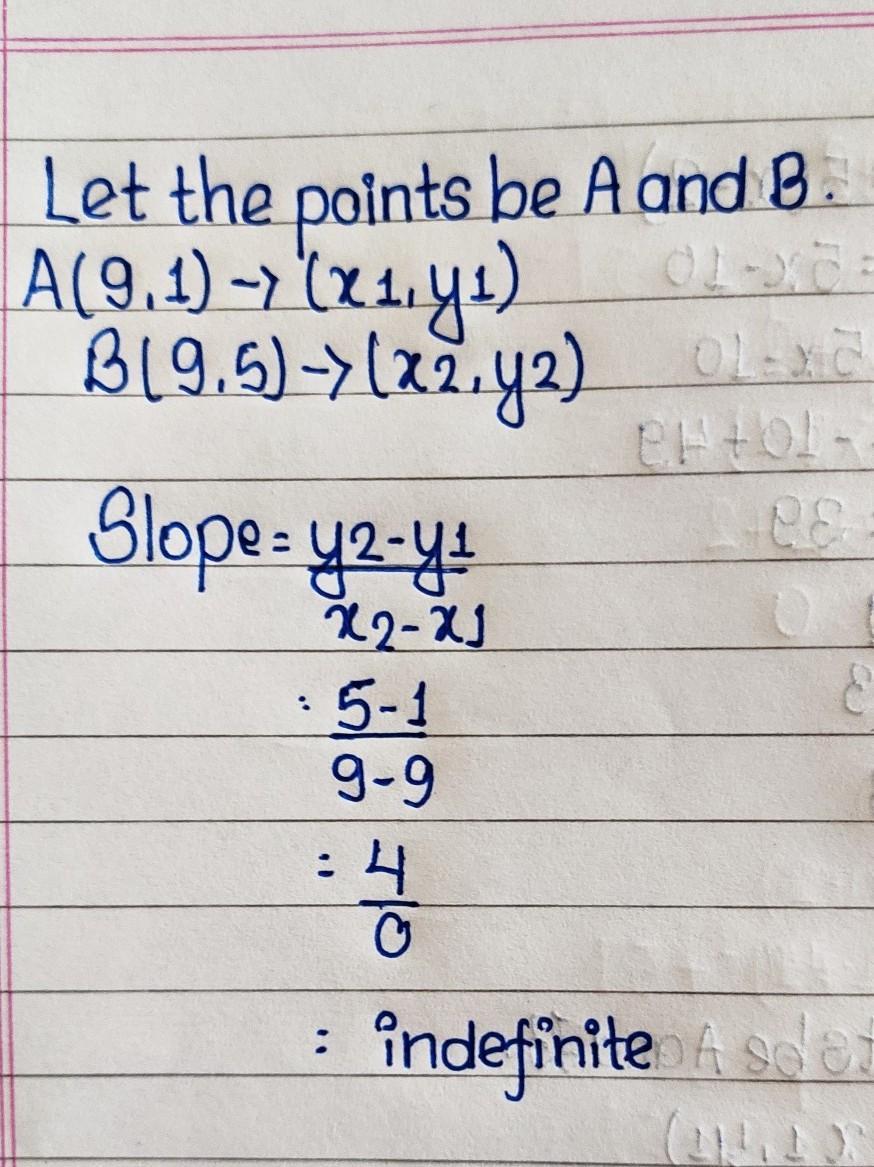 Let the points be A and B.
A(9,1) -> (x1,y1)
B(9,5) -> (x2,y2)
Slope = y2-y1
x2-x1
: 5-1
9-9
= 4
0
= indefinite